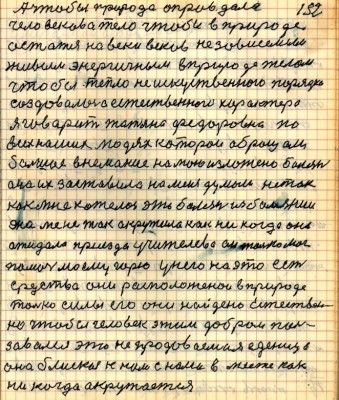 132
А чтобы природа оправдала
человекова тело чтобы в природе
остатся на веки веков независемым
живым энергичным в природе телом
чтобы тепло не искуственного порядка
создовалося естественного характера
я говарит татяна федоровна по
всех наших людях которои обращали
болшое внемание на мою изложено болезн
она их заставила на меня думат не так
как мне хотелос это болезн из болезнии
она мене так акрутила как ни когда она
ожидала приезда учителева он толко мог
помоч моему горю у него на это ест
средства они расположенои в природе
толко силы его они найдено естествен-
но чтобы человек этим добром пол-
зовался это не продоваемая еденица
она близкая к нам с нами в месте как
ни когда акрутается